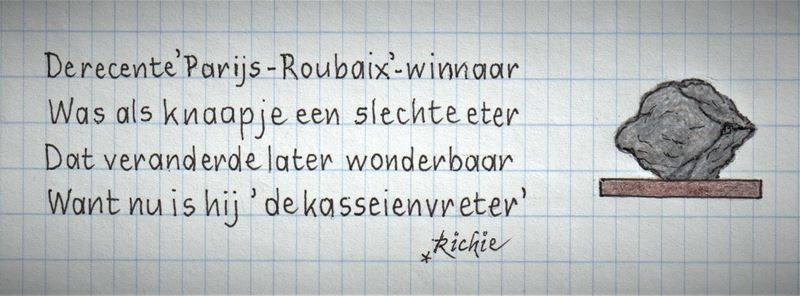 De recente 'Parijs-Roubaix'-winnaar
Was als knaapje een slechte eter
Dat veranderde later wonderbaar
Want nu is hij 'de kasseienvreter'
*Richie